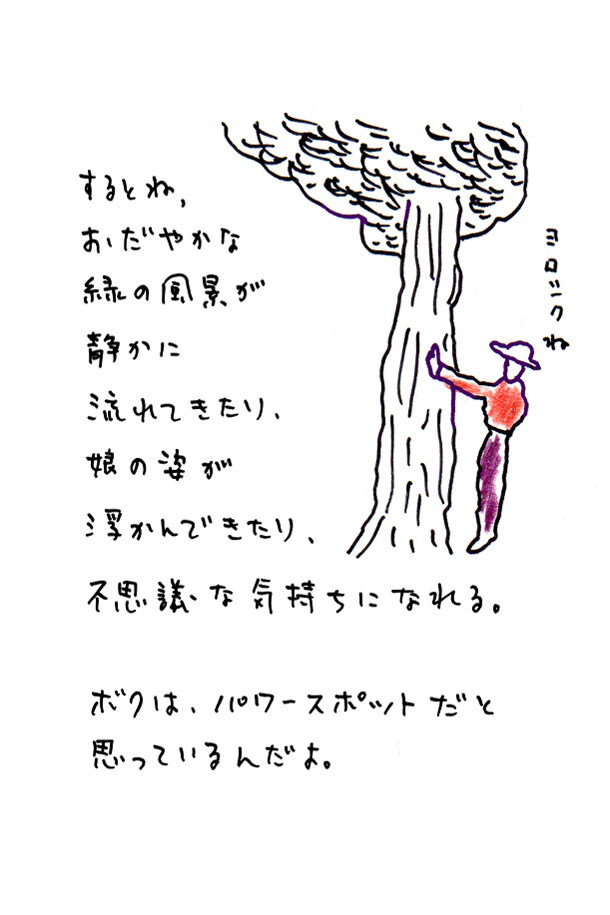 するとね、
おだやかな
緑の風景が
静かに
流れてきたり、
娘の姿が
浮かんできたり、
不思議な気持ちになれる。
ボクは、パワースポットだと
思っているんだよ。
ヨロシクね